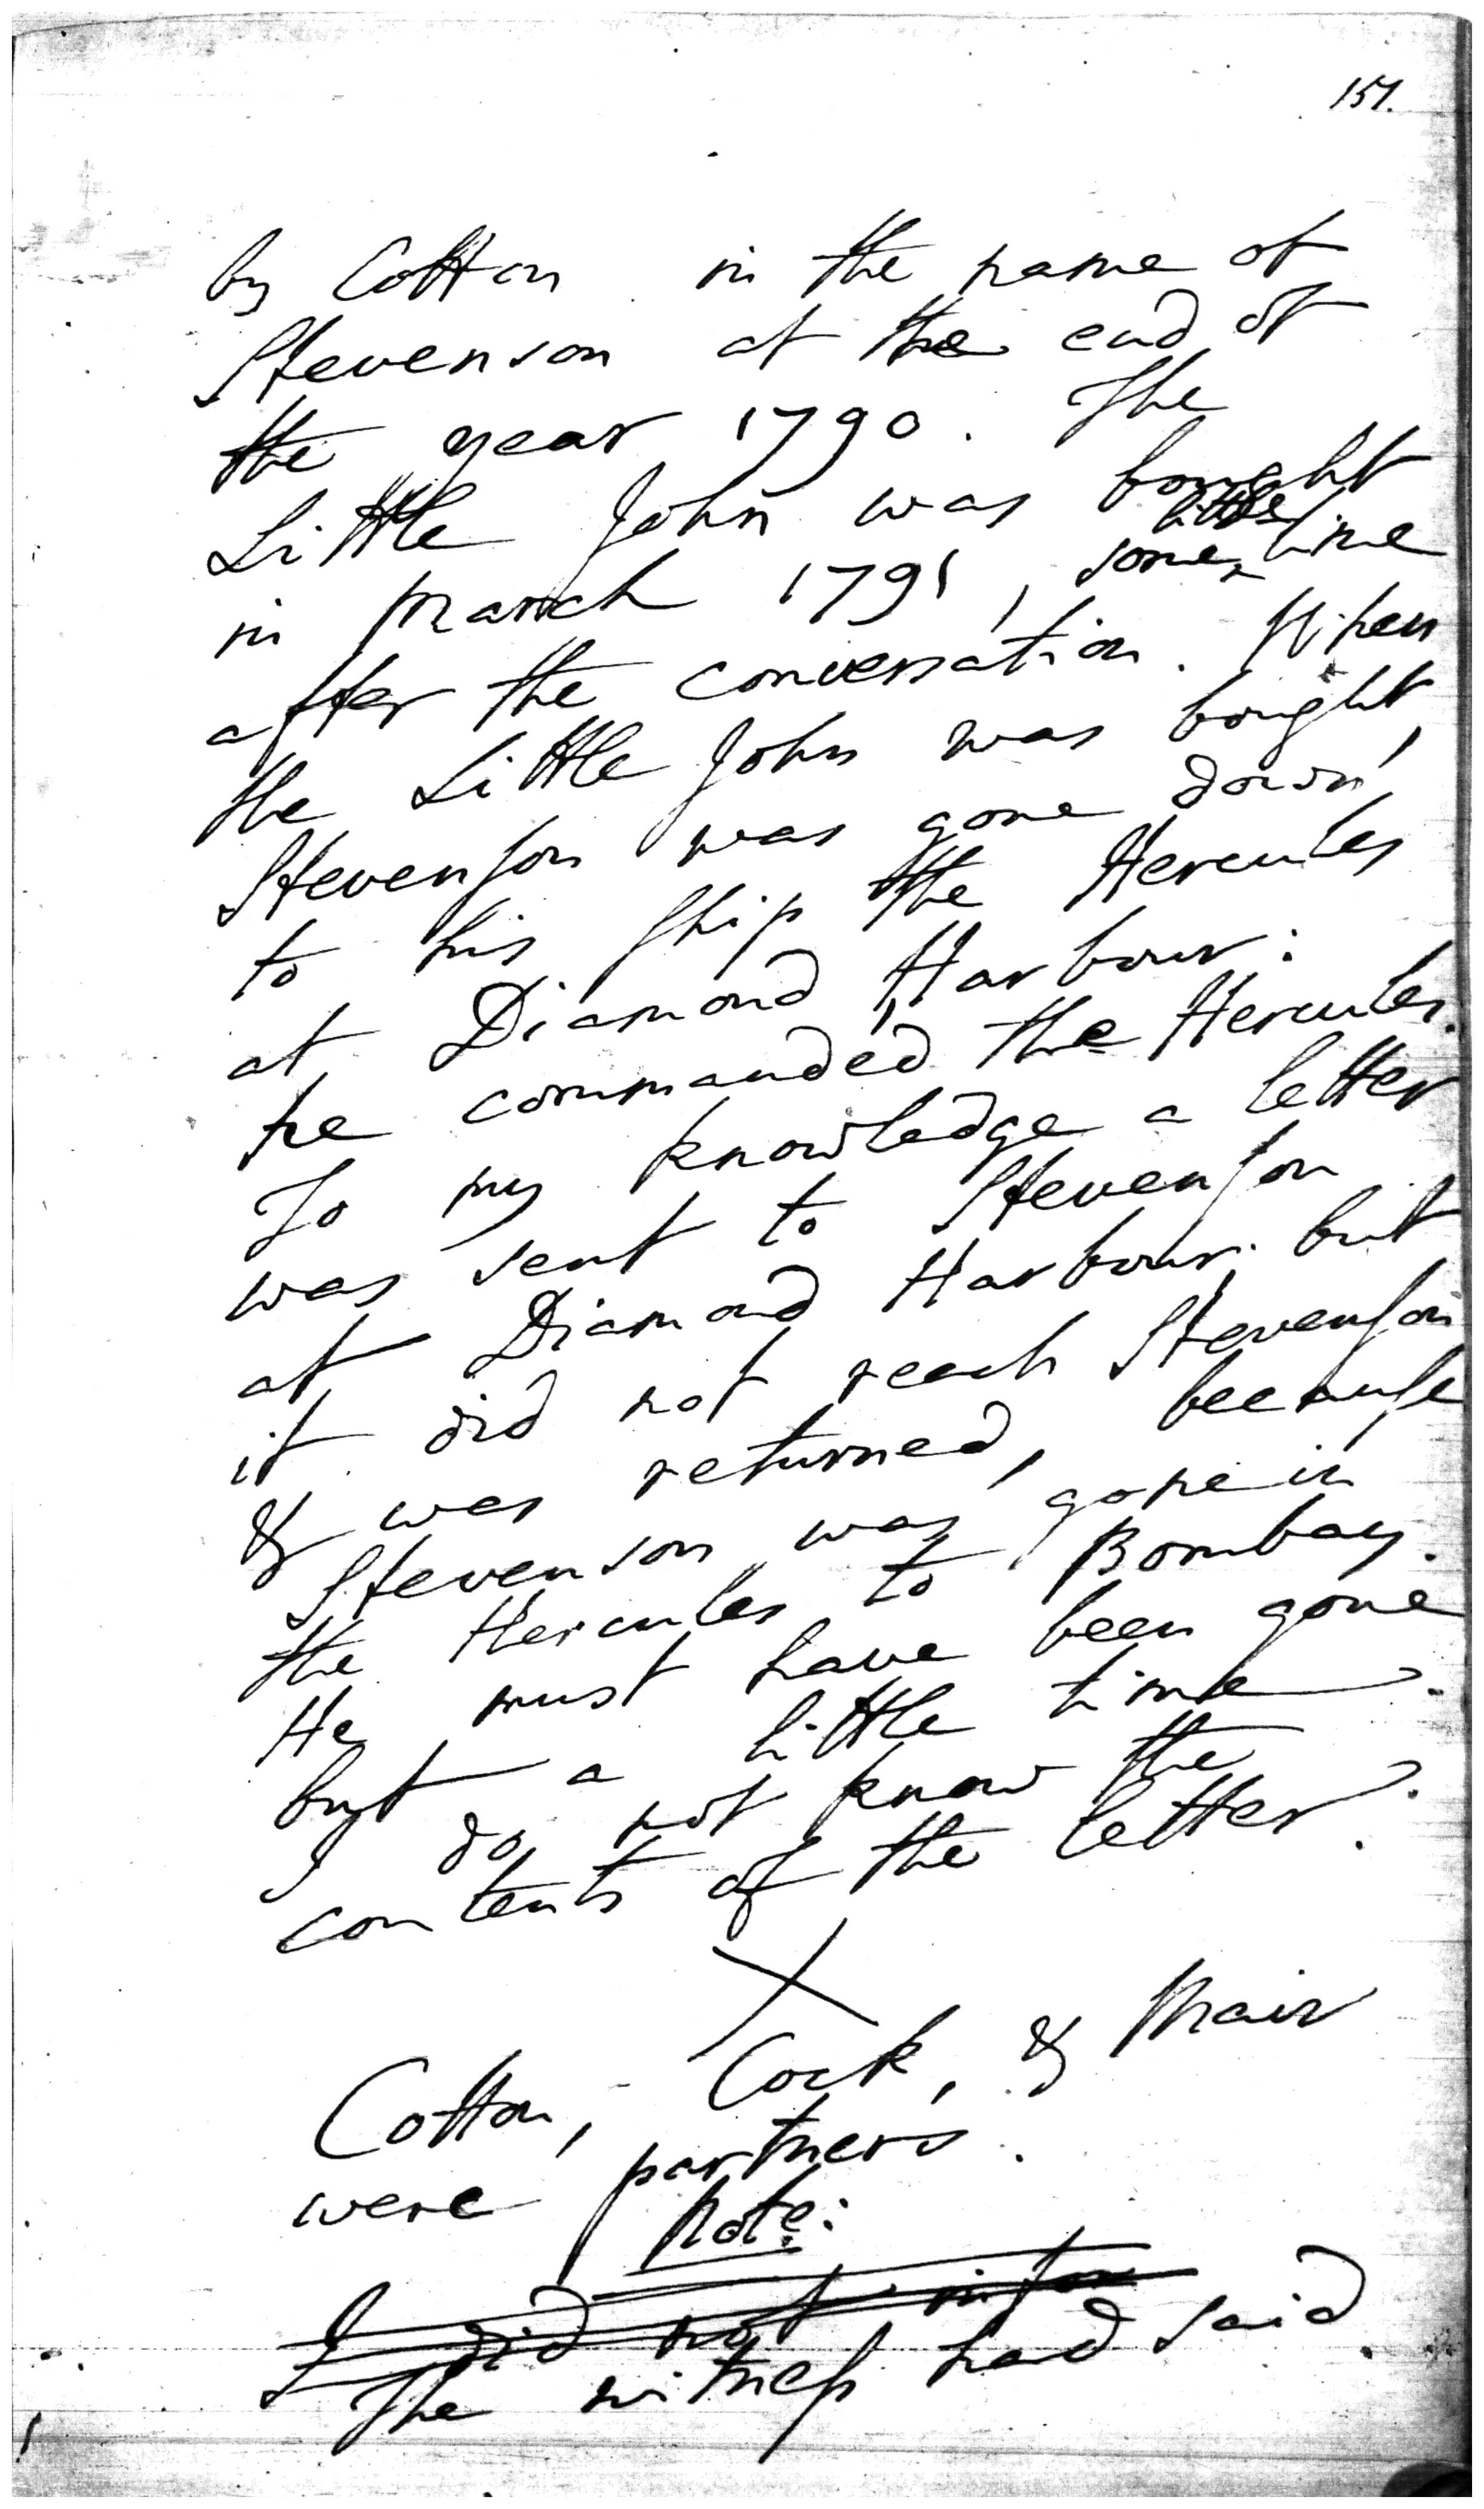 157.
by Cotton in the name of
Stevenson at the end of
the year 1790. The
Little John was bought
in March 1791, some little time
after the conversation. When
the Little John was bought,
Stevenſon was gone down
to his ſhip the Hercules
at Diamond Harbour:
he commanded the Hercules.
To my knowledge a letter
was sent to Stevenſon
at Diamond Harbour; but
it did not reach Stevenſon
& was returned, becauſe
Stevenson was gone in
the Hercules to Bombay.
He must have been gone
but a little time.
I do not know the
contents of the letter.
Cotton, Cock, & Mair
were partners.
Note:
I did not
The witneſs had said